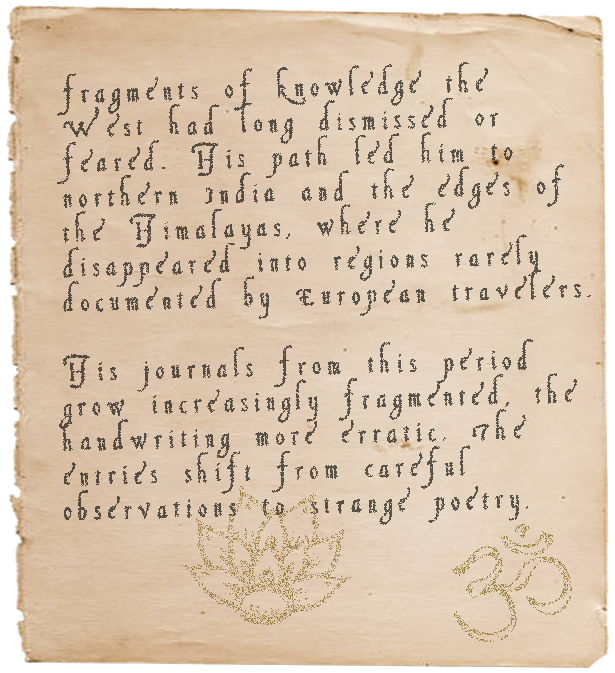 fragments of knowledge the
West had long dismissed or
feared. His path led him to
northern India and the edges of
the Himalayas, where he
disappeared into regions rarely
documented by European travelers.
His journals from this period
grow increasingly fragmented, the
handwriting more erratic. The
entries shift from careful
observations to strange poetry.
ॐ